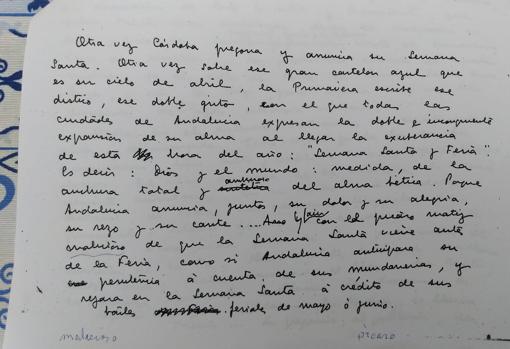 Otra vez Córdoba pregona y anuncia su Semana
Santa. Otra vez sobre ese gran cartelon azul que
es su cielo de abril, la Primavera escribe ese
distico, ese doble grito, con el que todas las
ciudades de Andalucia expresan la doble e incongruente
expansión de su alma al llegar la exuberancia
de esta hora del año: "Semana Santa y Feria".
Es decir: Dios y el mundo: medida, de la
anchura total y del alma bética. Porque
Andalucia anuncia, juntos, su dolor y su alegria,
su rezo y su cante .... y aun con el picaro matiz
de que la Semana Santa viene antes
de la Feria, como si Andalucia anticipara su
penitencia à cuenta de sus mundanerias, y
rezara en la Semana Santa à crédito de sus
bailes feriales de mayo ó junio.
picaro